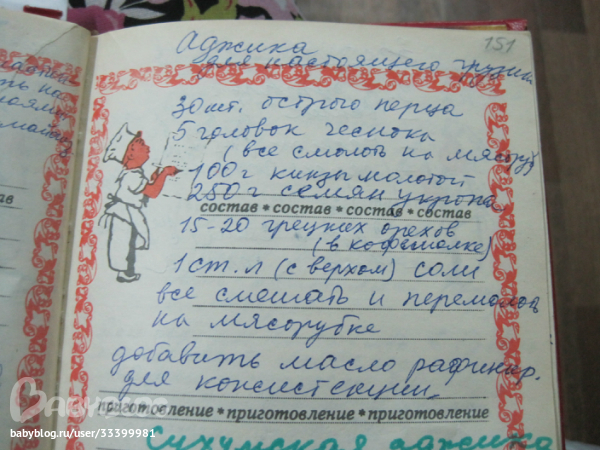 151
Аджика
для настоящего грузин.
30 шт. острого перца
5 головок чеснока
(все смолоть на мясоруб
100 г кинзы молотой
250 г семян укропа
состав * состав * состав * состав
15-20 грецких орехов
(в кофемолке)
1 ст. л (с верхом) соли
все смешать и перемолоть
на мясорубке
добавить масло рафинир.
для консистенции.
приготовление * приготовление * приготовление
Сухумская аджика
BABYBLOG
babyblog.ru/user/33399981